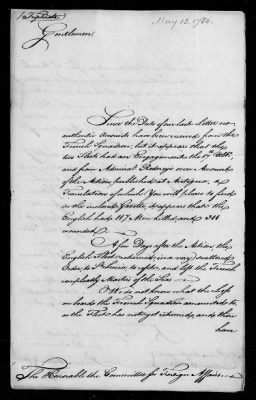 May 13. 1780.
Gentlemen,
Since the Date of our last Letter no
authentic Accounts have been received from the
French Squadron, but it appears that the
two Fleets had an Engagement the 17th Ulto.
and from Admiral Rodneys own Account
of the Action, published at Antigua, a
Translation of which You will please to find
in the inclosed Gazette, it appears that the
English had 117 Men killed, and 311
wounded.
A few Days after the Action, the
English Fleet returned, in a very scattered
Order, to St. Lucia, to refit, and left the French
compleatly Masters of the Seas.
We do not know what the Loss
on board the French Squadron amounts to,
as the Fleet has not yet returned, and there
have
The Honorable the Committee for Foreign Affairs